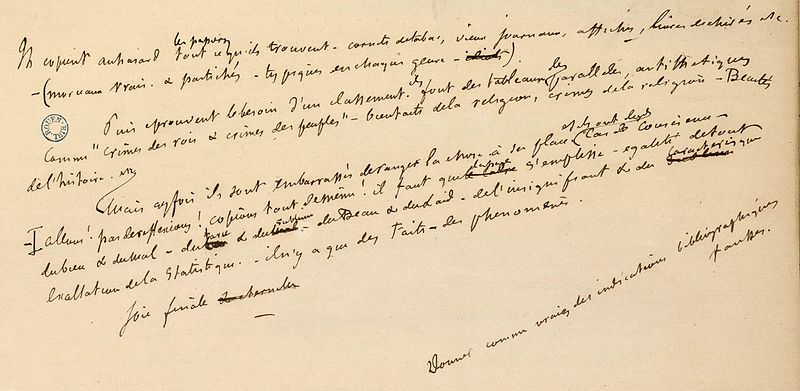 les papiers
Ils copient au hasard tout ce qu'ils trouvent - cornets de tabac, vieux journaux, affiches, livres déchirés etc.
- (morceaux vrais. & pastichés - typiques en chaque genre - )
Puis éprouvent le besoin d'un classement. ils font des tableaux, des parallèles, antithétiques
comme "crimes des rois & crimes des peuples" - bienfaits de la religion, crimes de la religion - Beautés
de l'histoire. etc
Mais qqfois ils sont embarrassés de ranger la chose à sa place & ils ont des Cas de Conscience -
- allons! pas de réflexions! copions tout de même! il faut que la page s'emplisse - égalité de tout
du bien & du mal - du farce & du sublime - du Beau & du Laid - de l'insignifiant & du caractéristique
Exaltation de la Statistique. - il n'y a que des Faits - des phénomènes.
Joie finale
Donner comme vraies des indications bibliographiques
fausses.